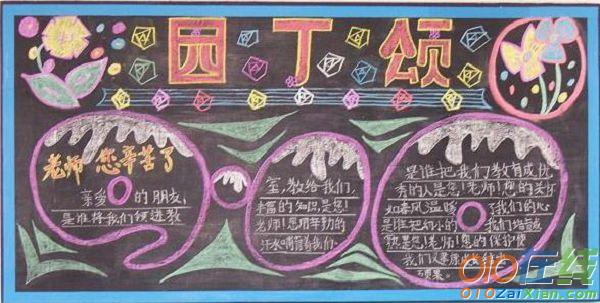 园丁颂
老师 您辛苦了
亲爱的朋友,
是谁将我们领进教
室,教给我们,
丰富的知识,是您!
老师!您用辛勤的
汗水哺育着我们。
是谁把我们教育成优
秀的人是您!老师!您的关怀
如春风温暖了我们的心
是谁把幼小的我们培育成
就是您!老师!您的保
我们
硕果。
010在线
010ZaiXian.com